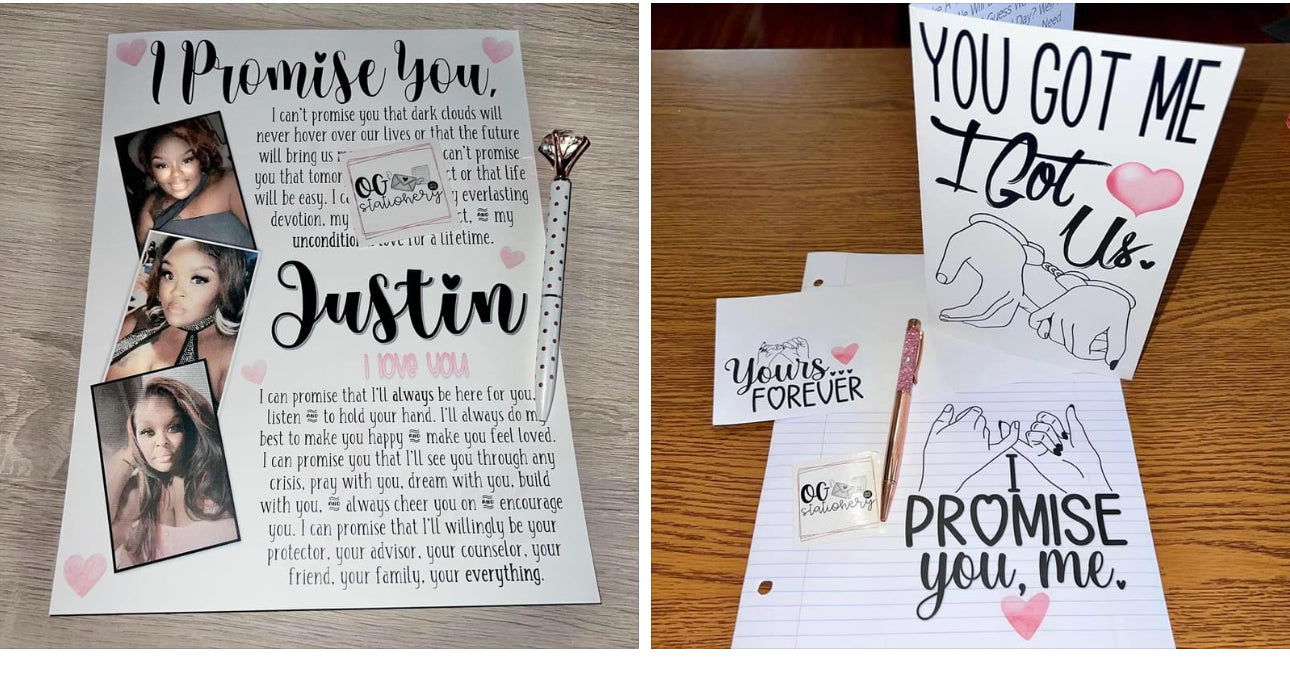 I Promise You,
I can't promise you that dark clouds will
never hover over our lives or that the future
will bring us can't promise
you that tomor or that life
will be easy. I everlasting
devotion, my AND my
love for a lifetime.
OG
stationery
Justin
I love you
I can promise that I'll always be here for you,
listen AND to hold your hand. I'll always do my
best to make you happy AND make you feel loved.
I can promise you that I'll see you through any
crisis, pray with you, dream with you, build
with you, AND always cheer you on AND encourage
you. I can promise that I'll willingly be your
protector, your advisor, your counselor, your
friend, your family, your everything.
Need
YOU GOT ME
I Got
Us.
Yours...
FOREVER
OG
stationery
I
PROMISE
you, me.